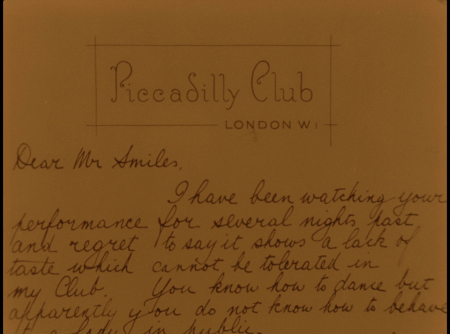 Piccadilly Club
LONDON W1
Dear Mr Smiles,
I have been watching your
performance for several nights past
and regret to say it shows a lack of
taste which cannot be tolerated in
my Club. You know how to dance but
apparently you do not know how to behave
a lady in public.